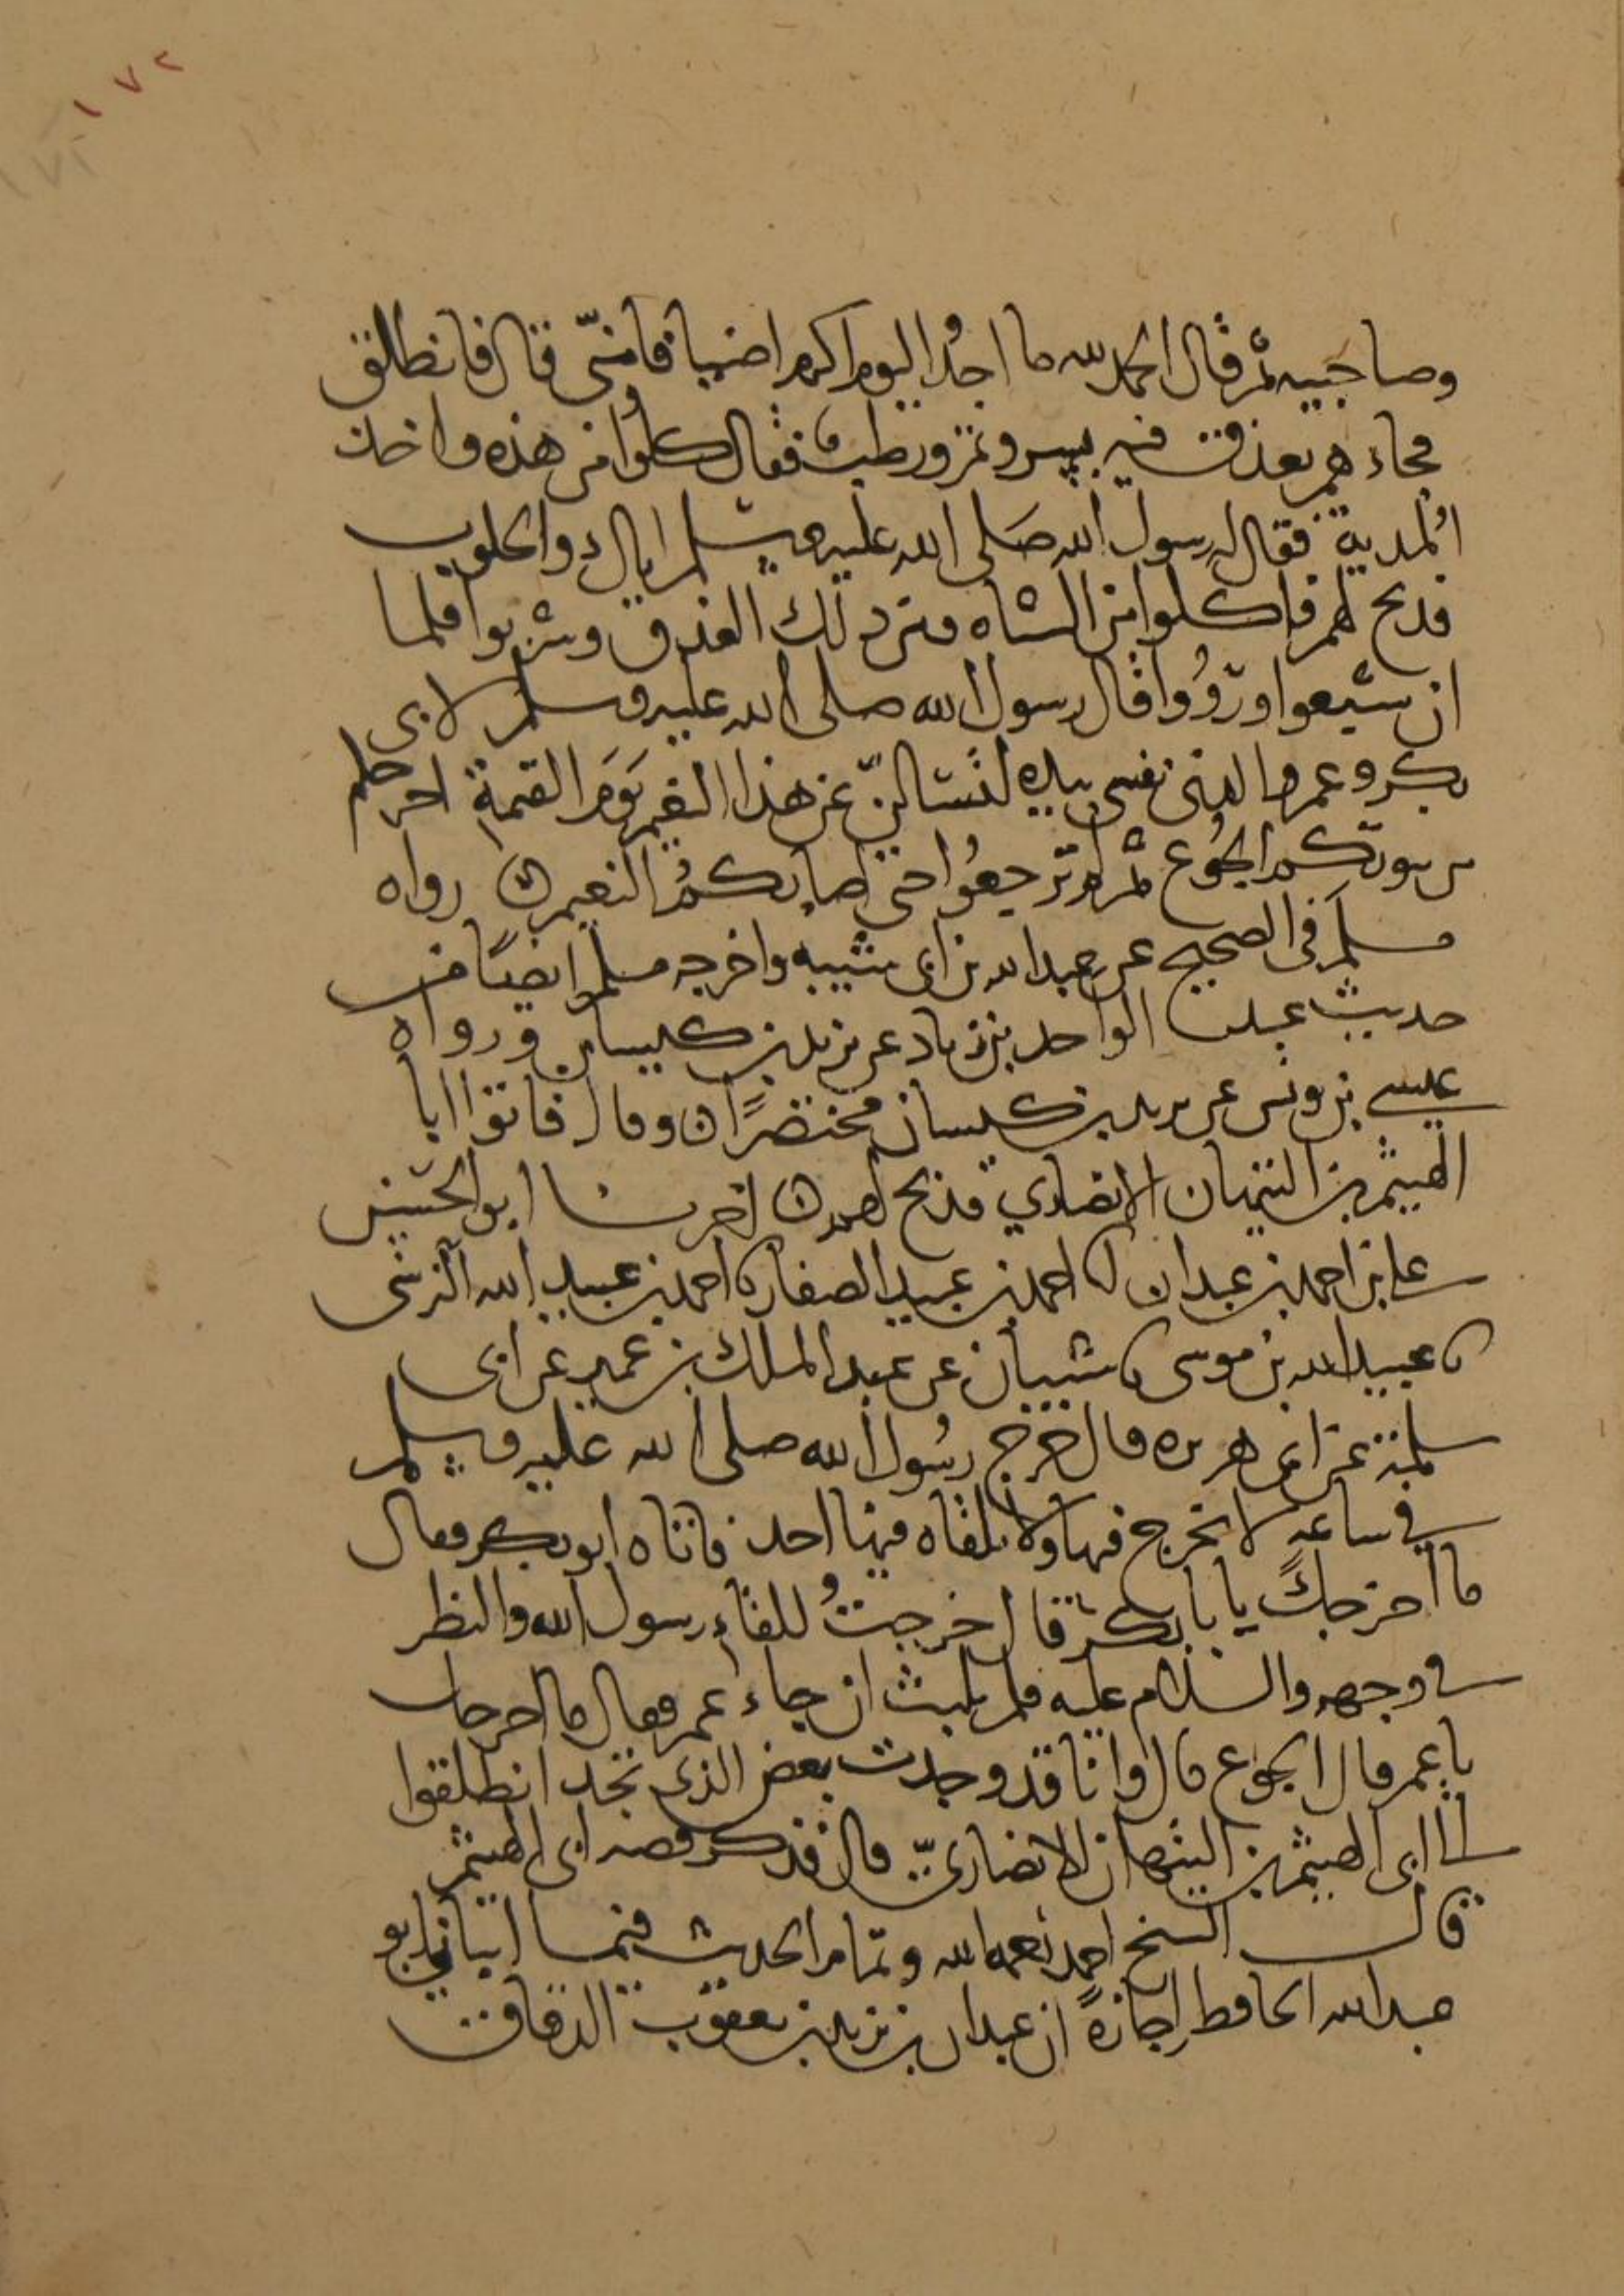 ١٧٢
وصاحبيه ثم قال الحمد لله ما احدُ اليوم اكرم اضيافا منّي قال فانطلق
فجاءهم بعذق فيه بسر وتمر ورطب فقال كلوا من هذه واخذ
المدية فقال له رسول الله صلى الله عليه وسلم اياك والحلوب
فذبح لهم فاكلوا من الشاه ومن ذلك العذق وشربوا فلما
ان شبعوا وروُوا قال رسول الله صلى الله عليه وسلم لابى
بكر وعمر والذى نفسى بيده لتسالنّ عن هذا النعيم يوم القيمة اخرجكم
من بيوتكم الجوع ثم لم ترجعوا حتى اصابكم النعيم رواه
مسلم فى الصحيح عن عبد الله بن ابى شيبه واخرجه مسلم ايضًا من
حديث عبد الواحد بن زياد عن يزيد بن كيسان ورواه
عيسى بن يونس عن يزيد بن كيسان مختصرًا وقال فاتوا ابا
الهيثم بن التيهان الانصاري فذبح لهم اخبرنا ابو الحسن
على بن احمد بن عبدان انا احمد بن عبيد الصفار نا احمد بن عبيد الله النرسى
نا عبيد الله بن موسى نا شيبان عن عبد الملك بن عمير عن ابى
سلمة عن ابى هريره قال خرج رسُول الله صلى الله عليه وسلم
فى ساعةٍ لا يخرج فيها ولا يلقاه فيها احد فاتاه ابو بكر فقال
ما اخرجك يا با بكر قال خرجتُ للقاء رسول الله والنظر
فى وجهه والسلام عليه فلم يلبث ان جاء عمر فقال ما اخرجك
يا عمر قال الجوع قال وانا قد وجدت بعض الذى تجد انطلقوا
الى ابى الهيثم بن التيهان الانصارىّ قال فذكر قصه ابى الهيثم
قال الشيخ احمد وتمام الحديث فيما ابو
عبد الله الحافظ اجازةً ان عبدان بن يزيد بن يعقوب الدقاق